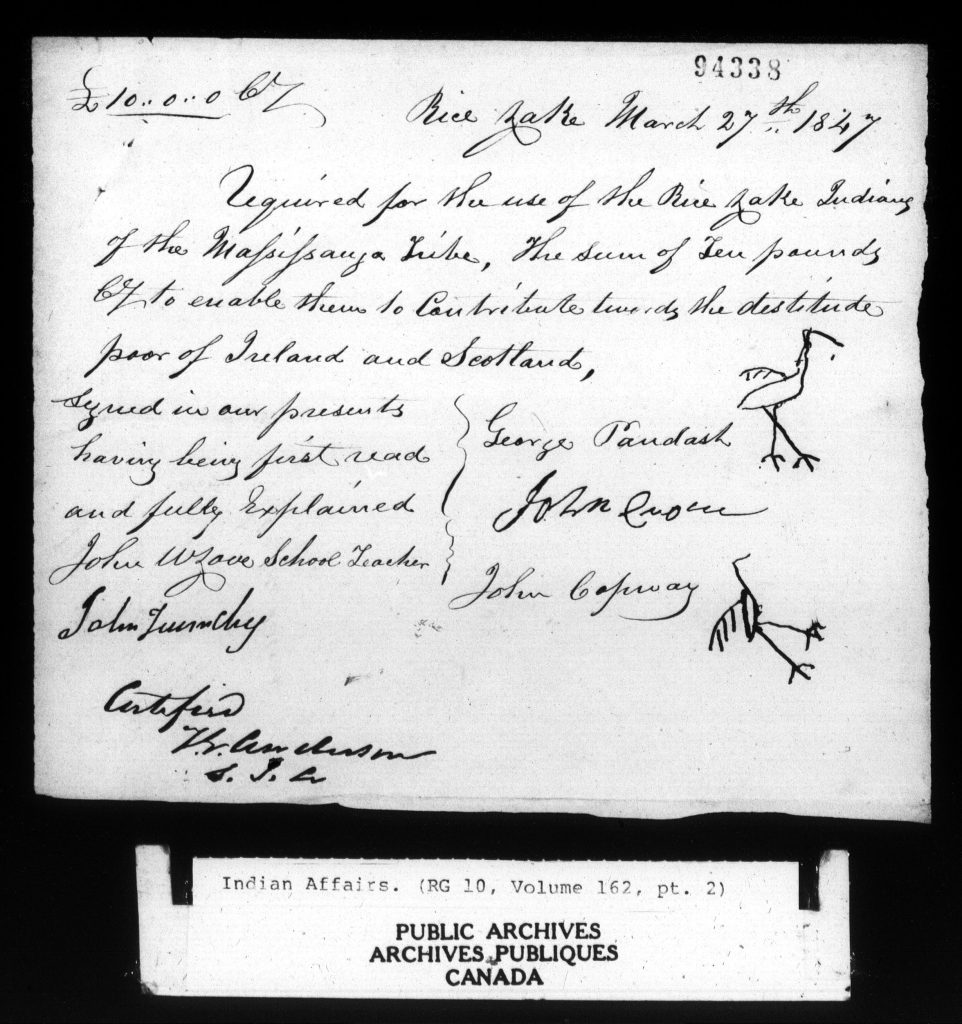 94338
£10..0..0 Cy
Rice Lake March 27th 1847
Required for the use of the Rice Lake Indians
of the Massissauga Tribe, the sum of Ten pounds
Cy to enable them to Contribute towards the destitude
poor of Ireland and Scotland,
Signed in our presents
having being first read
and fully Explained
John W Love School Teacher
John Sunday
George Paudash
John Crow
John Copway
Certified
T.G. Anderson
S. I. A
Indian Affairs. (RG 10, Volume 162, pt. 2)
PUBLIC ARCHIVES
ARCHIVES PUBLIQUES
CANADA